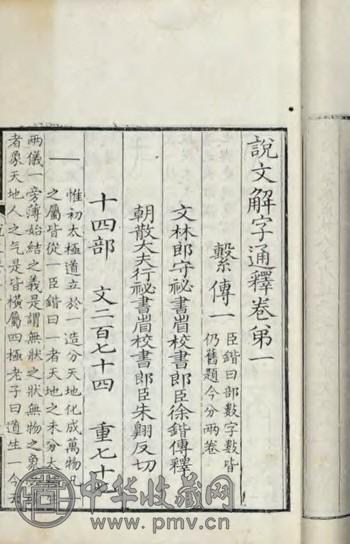 說文解字通釋卷第一
繫傳一 臣鍇曰部數字數皆
仍舊題今分兩卷
文林郎守祕書省校書郎臣徐鍇傳釋
朝散大夫行祕書省校書郎臣朱翱反切
十四部 文二百七十四 重七十
一 惟初太極道立於一造分天地化成萬物凡
之屬皆從一臣鍇曰一者天地之未分太
兩儀一旁薄始結之義是謂無狀之狀無物之象
者象天地人之气是皆橫屬四極老子曰道生一今云
中华收藏网
www.pmv.cn